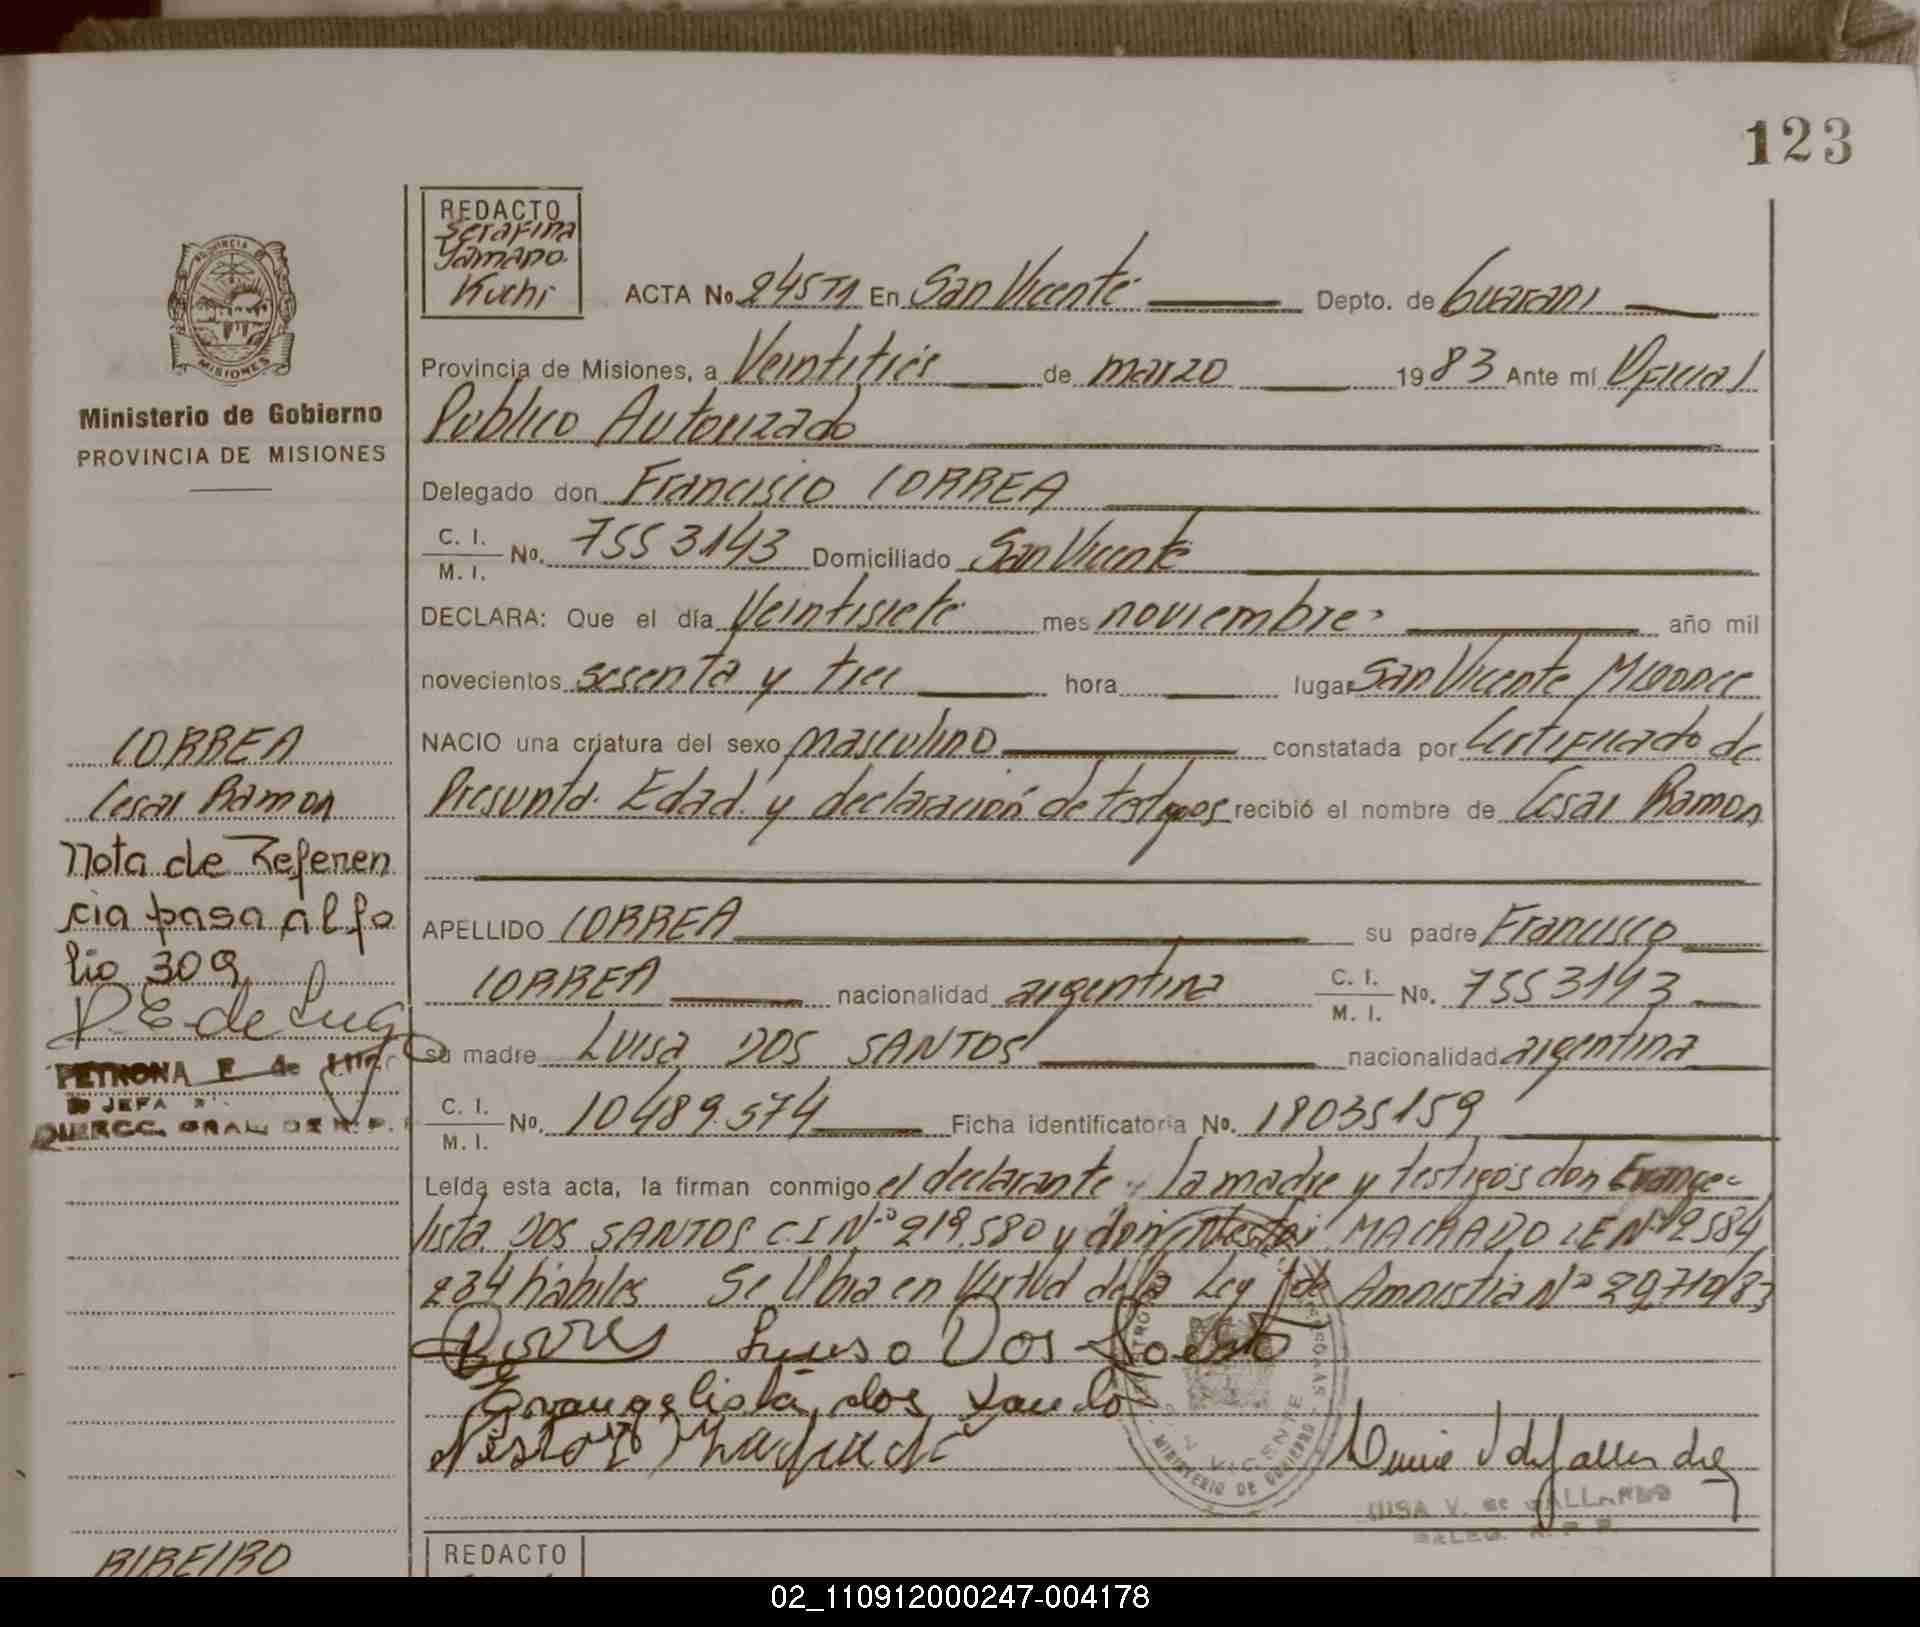 123
REDACTO
Serafina
Yamano.
Kuchi
ACTA No 245T1 En San Vicente Depto. de Guarani
Provincia de Misiones, a Veintitrés de marzo 1983 Ante mí Oficial
Publico Autorizado
Delegado don Francisco CORREA
C. I.
M. I. No. 7553143 Domiciliado San Vicente
DECLARA: Que el día Veintisiete mes noviembre año mil
novecientos sesenta y tres hora lugar San Vicente Misiones
NACIO una criatura del sexo masculino constatada por Certificado de
Presunta. Edad. y declaración de testigos recibió el nombre de Cesar Ramon
APELLIDO CORREA su padre Francisco
CORREA nacionalidad argentina C. I.
M. I. No. 7553143
su madre Luisa DOS SANTOS nacionalidad argentina
C. I.
M. I. No. 10489.574 Ficha identificatoria No. 18035159
Leída esta acta, la firman conmigo el declarante y la madre y testigos don Evange-
lista DOS SANTOS C.I Nº 219.580 y don Nestor MACHADO LE Nº 2584
234 habiles Se Ubia en Virtud de la Ley de Amnistia Nº 29710/83
Evangelista dos Santo
LUISA V. de GALLARDO
DELEG. R. P. P.
PROVINCIA DE
MISIONES
Ministerio de Gobierno
PROVINCIA DE MISIONES
CORREA
Cesar Ramon
Nota de Referen
cia pasa al fo
lio 309
P E de Lugo
PETRONA E de LUGO
JEFA
DIRECC. GRAL DE R. P.
SAN VICENTE
MINISTERIO DE GOBIERNO
RIBEIRO
REDACTO
02_110912000247-004178